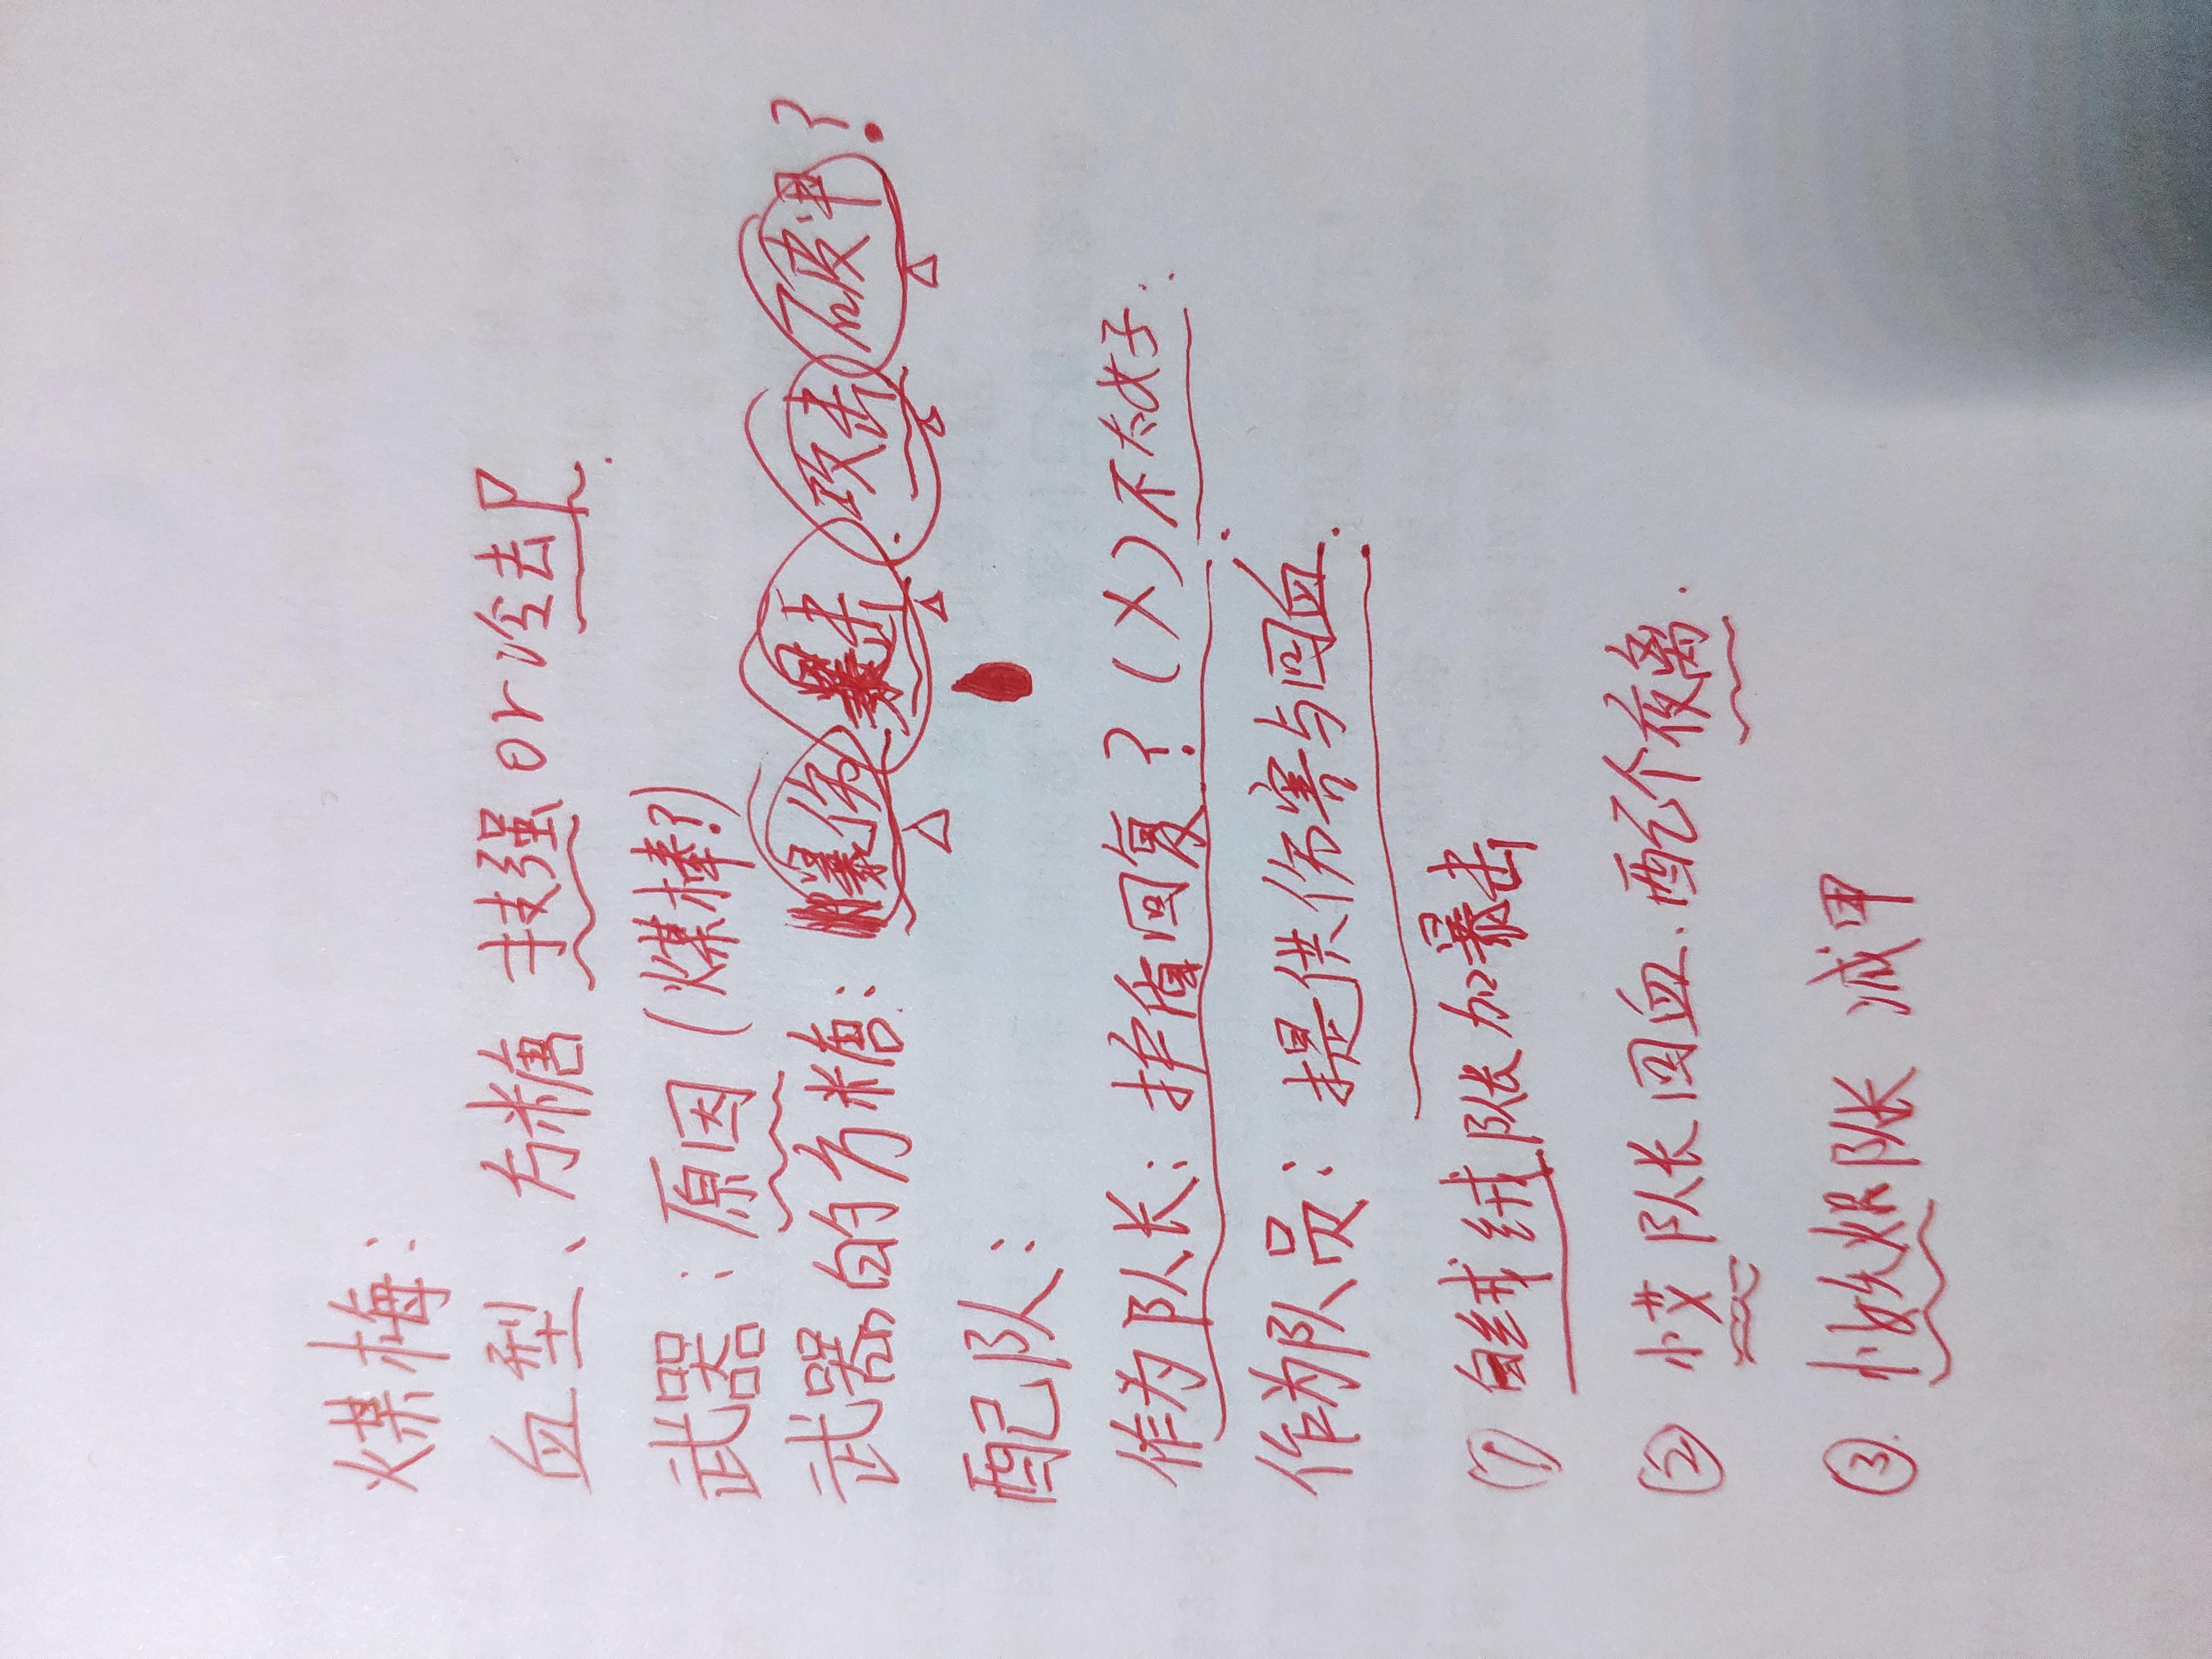 煤梅：
血型、方糖 技强 or 冷去P.
武器：原因（煤棒？）
武器的方糖：爆伤 暴击. 攻击 破甲？
配队：
作为队长：护盾回复？（X）不太好.
作为队员：提供伤害与回血.
① 白绒绒队长加暴击
② 小艾 队长回血. 配个夜离.
③. 队长 减甲